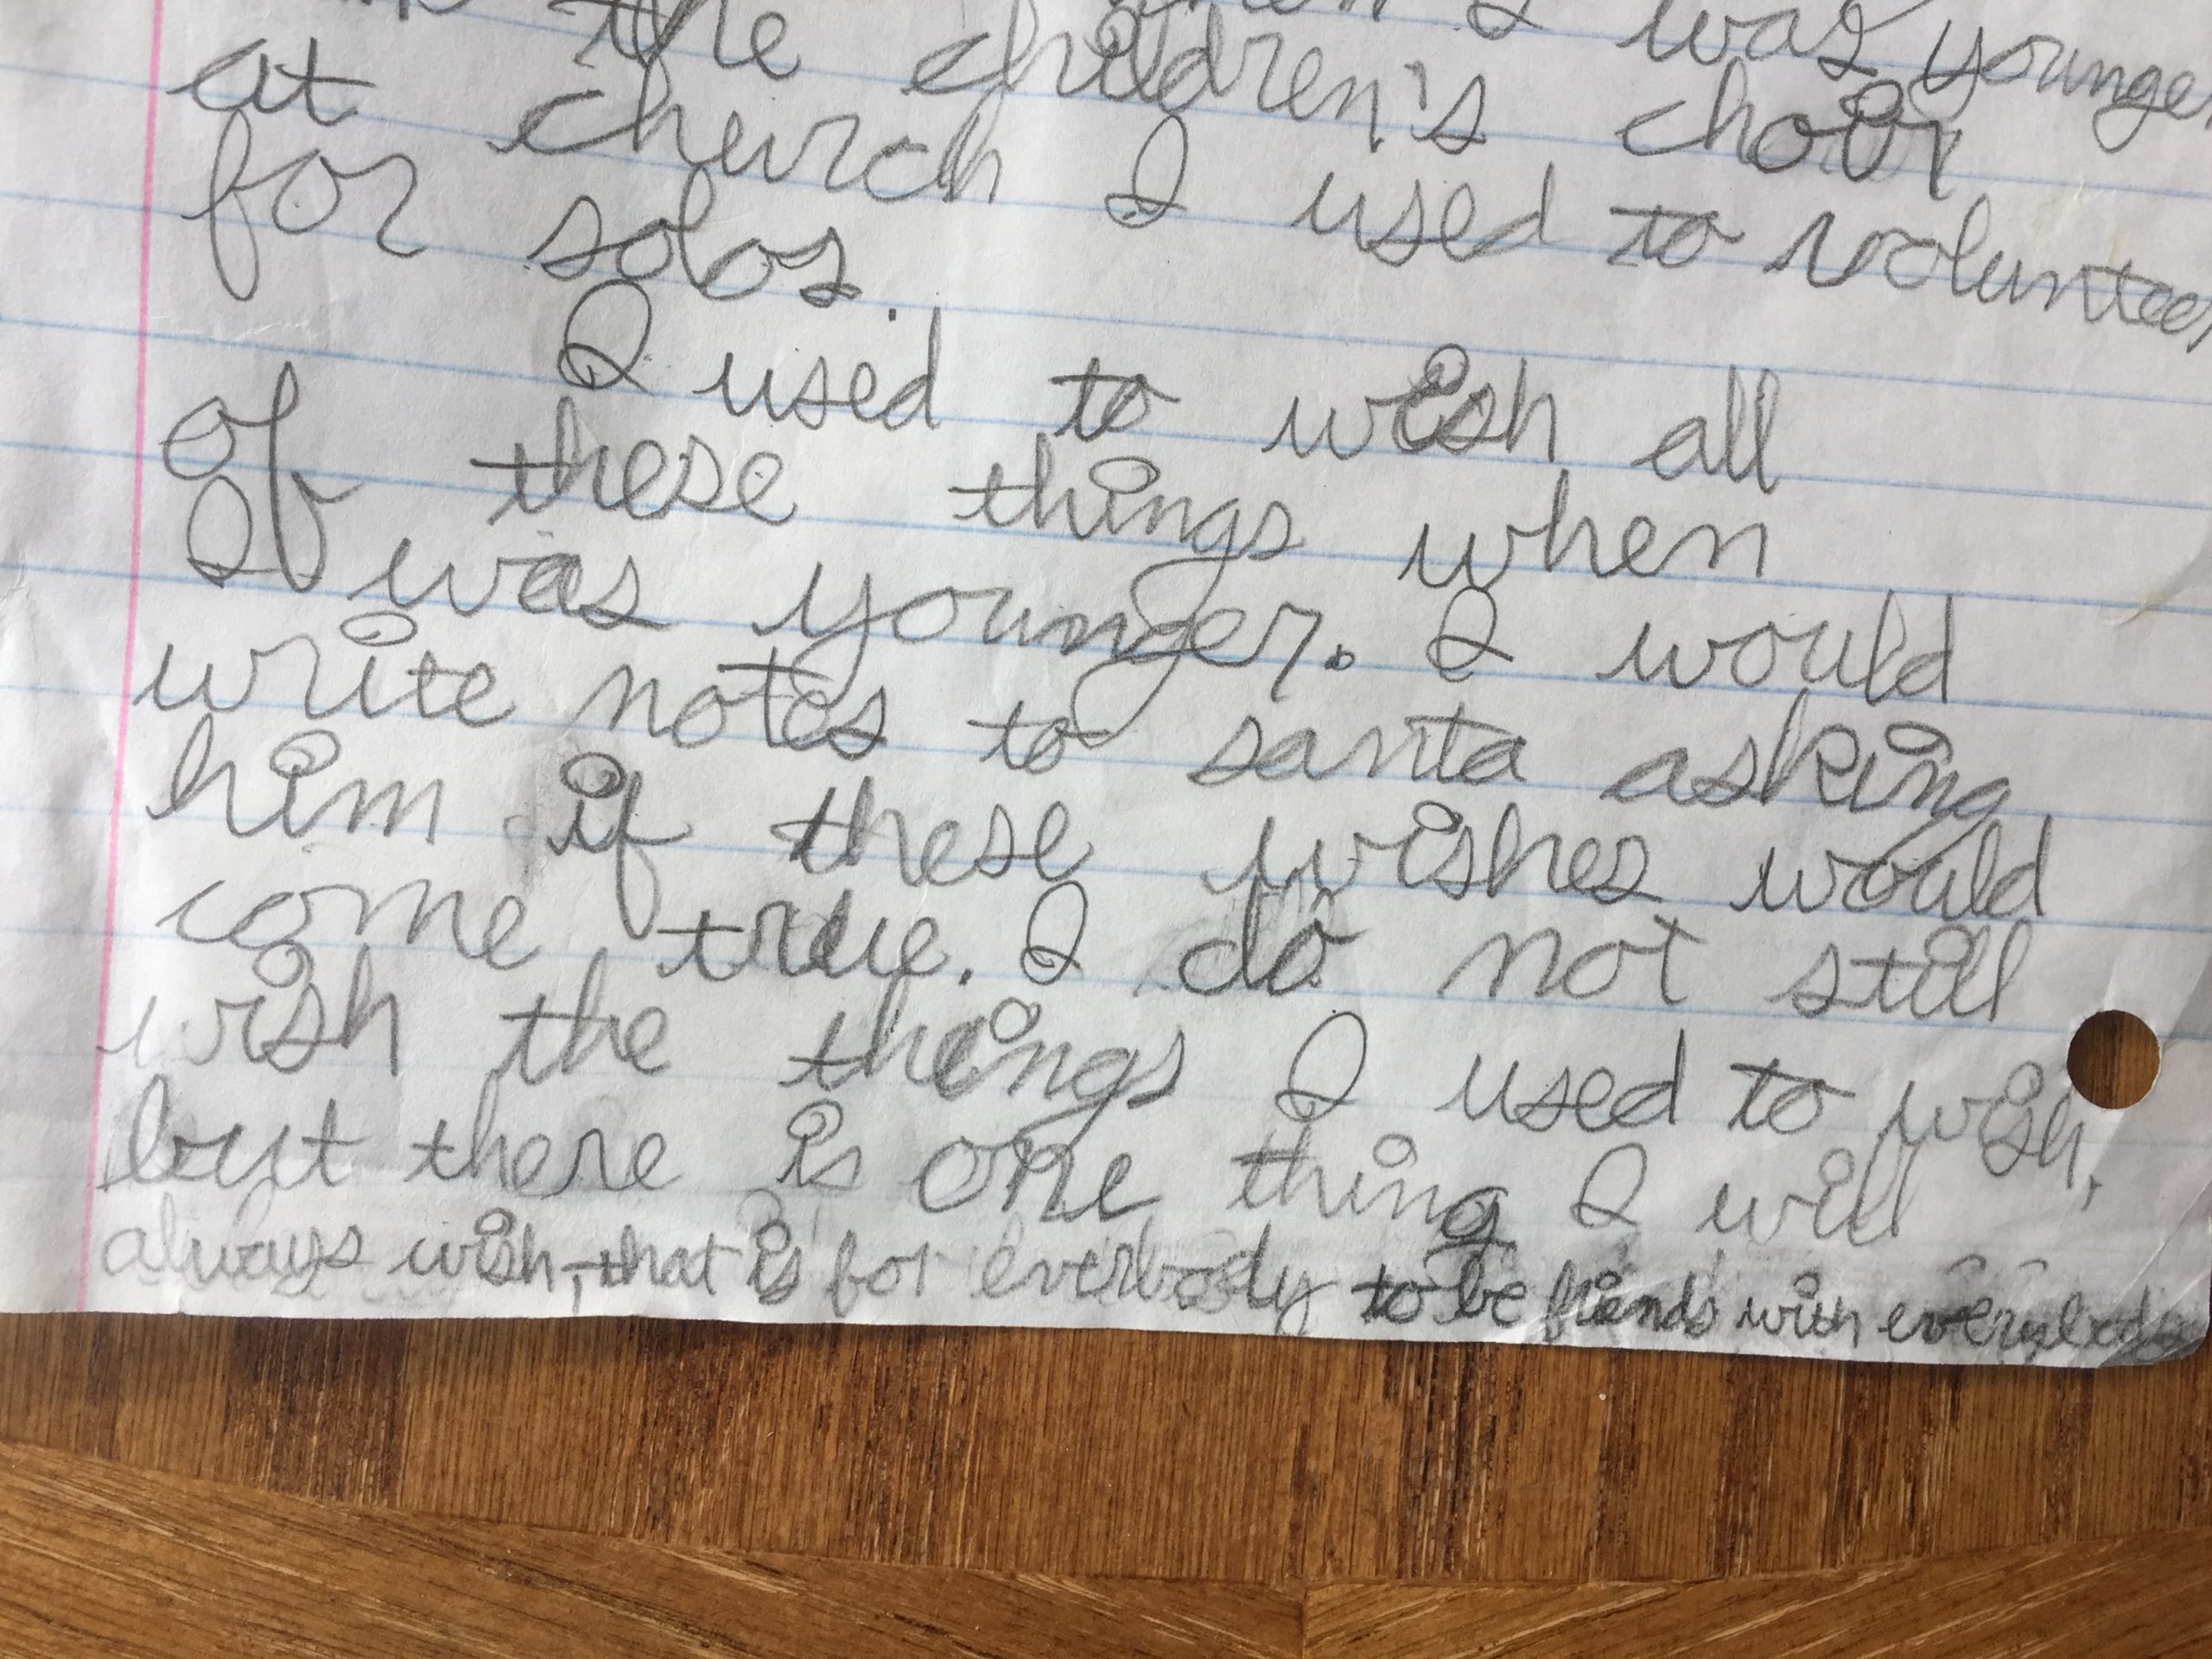 I was younger
the children's choir
at church I used to volunteer
for solos.
I used to wish all
of these things when
I was younger. I would
write notes to santa asking
him if these wishes would
come true. I do not still
wish the things I used to wish,
but there is one thing I will
always wish, that is for everbody to be fiends with everybody